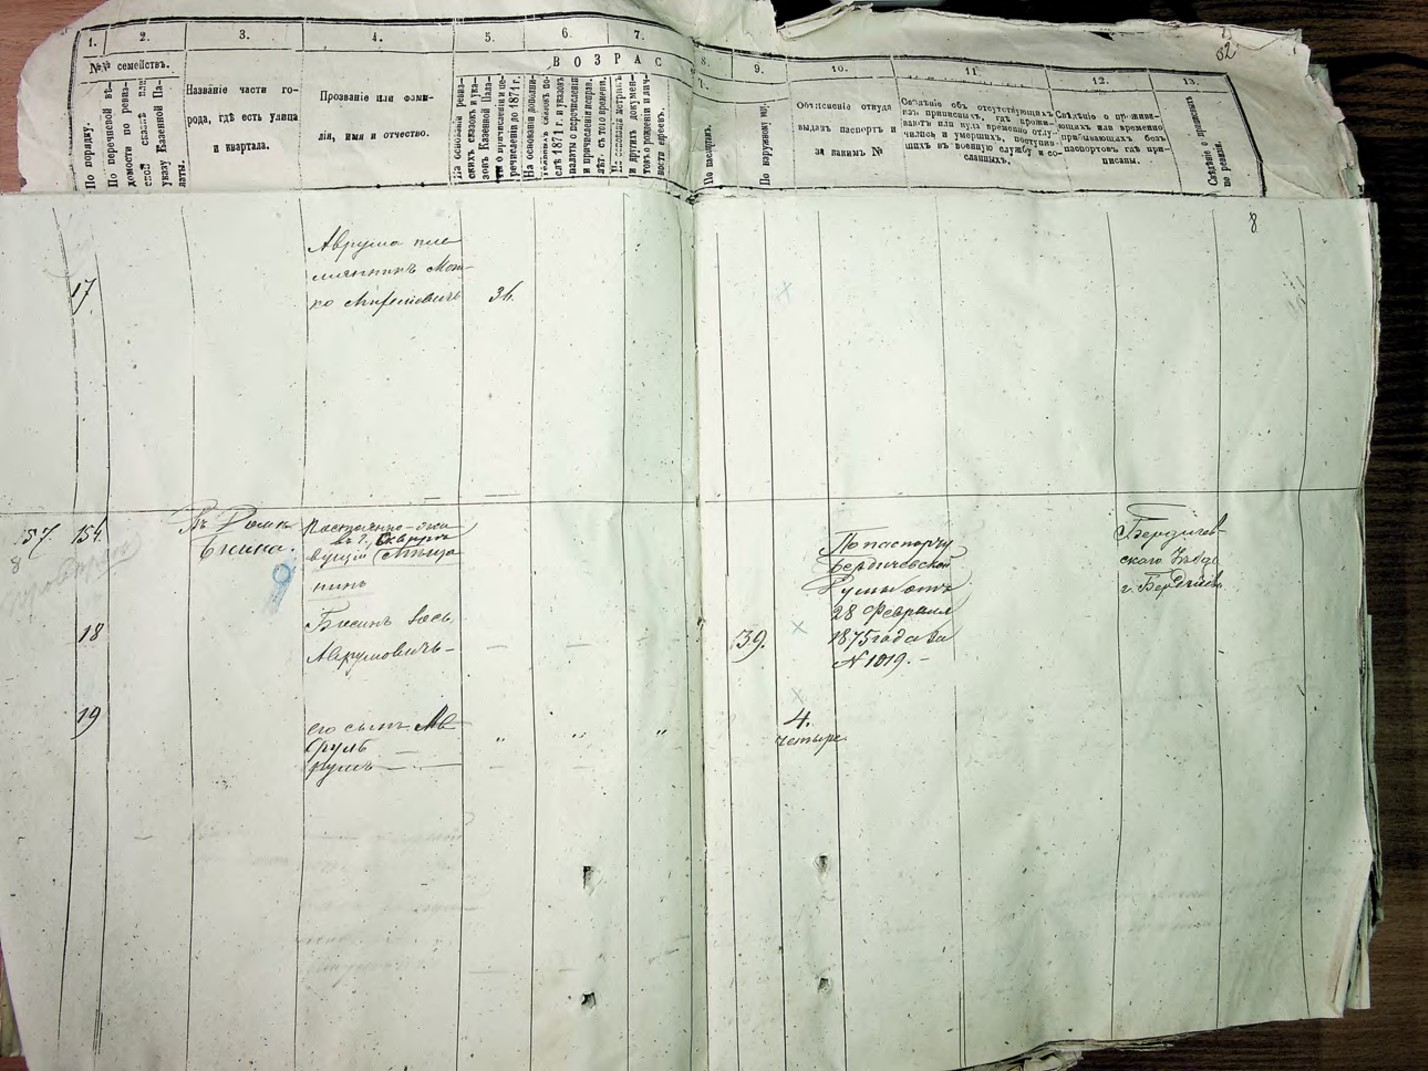 62
1. 2. 3. 4. 5. 6. 7. 8. 9. 10. 11. 12. 13.
№№ семействъ.
В О З Р А С
По порядку.
По перечневой вѣ-
домости по ревиз-
ской сказкѣ или
указу Казенной Па-
латы.
Названіе части го-
рода, гдѣ есть улица
и квартала.
Прозваніе или фами-
лія, имя и отчество.
На основаніи ревиз-
скихъ сказокъ и ука-
зовъ Казенной Пала-
ты о причисленіи и пе-
речисленіи до 1871 г.
На основаніи дополни-
тельныхъ сказокъ по-
слѣ 1871 г. и указовъ
палаты о перечисленіи
и причисленіи исправ.
лѣтъ съ того времени.
На основаніи метрикъ
и другихъ докумен-
товъ о рожденіи и лич-
ности евреевъ.
По паспортамъ.
По наружному виду.
Объясненіе откуда
выданъ паспортъ и
за какимъ №
Свѣдѣніе объ отсутствующихъ
изъ приписныхъ, гдѣ прожи-
ваютъ или куда временно отлу-
чились и умершихъ, поступив-
шихъ въ военную службу и со-
сланныхъ.
Свѣдѣніе о прожива-
ющихъ или временно
прибывающихъ безъ
паспортовъ гдѣ при-
писаны.
Свѣдѣніе о приписныхъ
по ревизіи.
8
17.
Аврума пле
мянникъ Мош-
ко
36.
157. 154.
8
Въ Домѣ
Бисина.
Постоянно-жи
въ г.
вущій Мѣща
нинъ
18
Бисинъ Іось
Аврумовичъ-
39.
По паспорту
Бердичевской
Думы отъ
28 Февраля
1875 года за
№ 1019.-
Бердичев-
скаго Уѣзда
г. Бердичева
19
его сынъ Ав
румъ
4.
четыре.